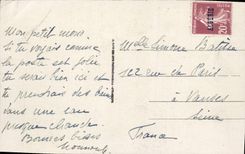 Mon petit mousi
Si tu voyais comme
la poste est jolie
tu serais bien ici et
tu prendrais des bains
dans une eau
presque chaude
Bonnes bises
Mlle Simone
102 rue de Paris
à Vanves
Seine
France
20